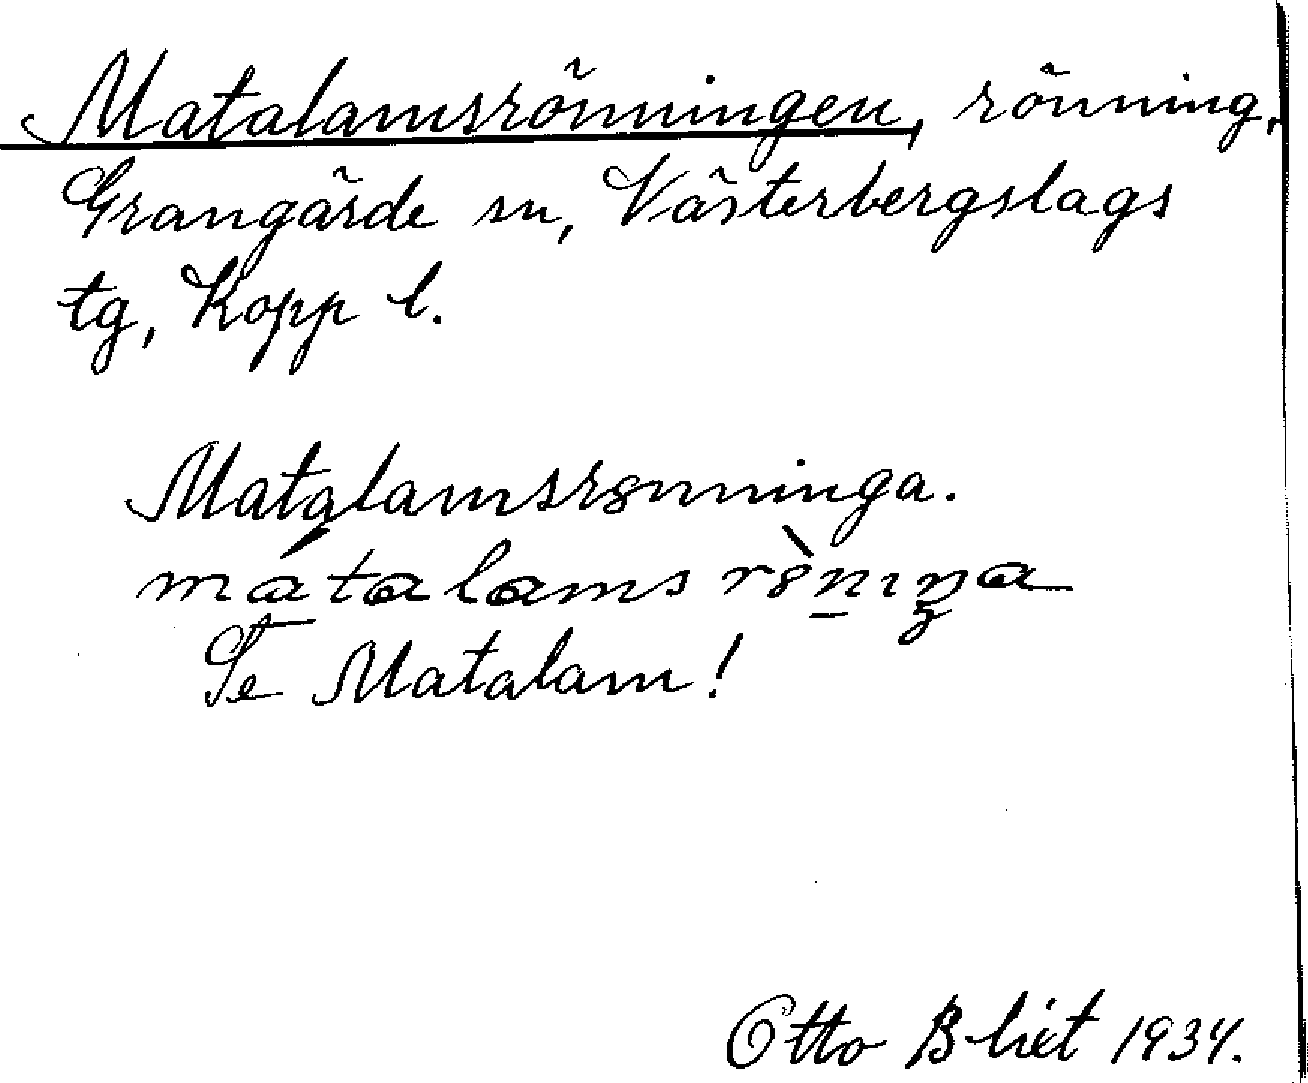 Matalamsrönningen, rönning,
Grangärde sn, Västerbergslags
tg, Kopp l.
Matalamsrȣnninga.
mátalams rȣ̀nıŋa
Se Matalam!
Otto Bliet 1934.